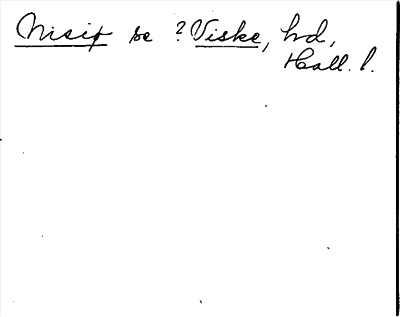 Nisip se ? Viske, hrd,
Hall. l.